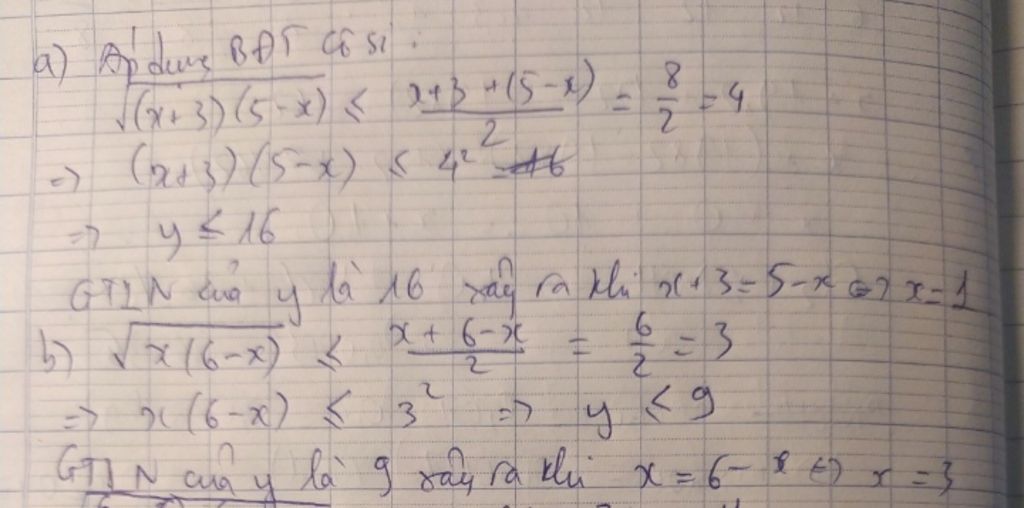 a) Áp dụng BĐT Cô si :
√(x+3)(5-x) ≤ x+3+(5-x) / 2 = 8/2 = 4
=> (x+3)(5-x) ≤ 4²
=> y ≤ 16
GTLN của y là 16 xảy ra khi x+3=5-x <=> x=1
b) √x(6-x) ≤ x+6-x / 2 = 6/2 = 3
=> x(6-x) ≤ 3² => y ≤ 9
GTLN của y là 9 xảy ra khi x = 6-x <=> x = 3